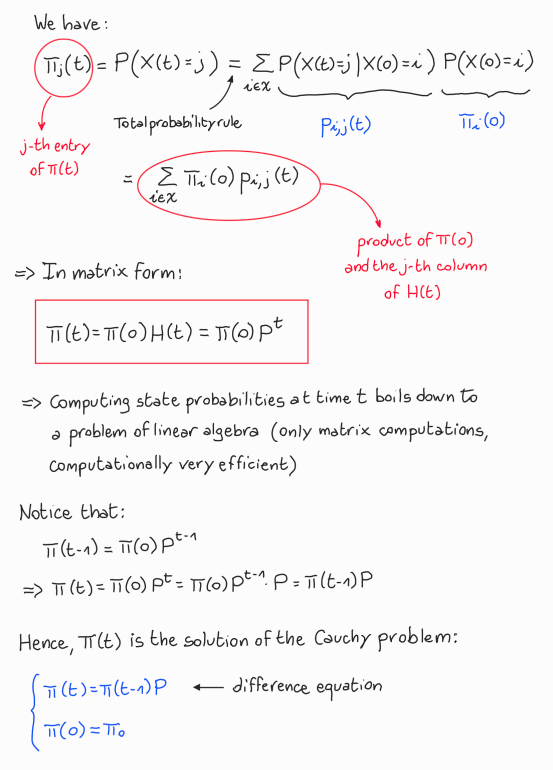 We have:
πⱼ(t) = P(X(t)=j) = Σ_{i∈X} P(X(t)=j|X(0)=i) P(X(0)=i)
Total probability rule
p_{i,j}(t)
π_i(0)
j-th entry
of π(t)
= Σ_{i∈X} π_i(0) p_{i,j}(t)
product of π(0)
and the j-th column
of H(t)
=> In matrix form:
π(t)=π(0)H(t) = π(0)P^t
=> Computing state probabilities at time t boils down to
a problem of linear algebra (only matrix computations,
computationally very efficient)
Notice that:
π(t-1) = π(0)P^{t-1}
=> π(t) = π(0)P^t = π(0)P^{t-1}·P = π(t-1)P
Hence, π(t) is the solution of the Cauchy problem:
π(t)=π(t-1)P ← difference equation
π(0)=π₀